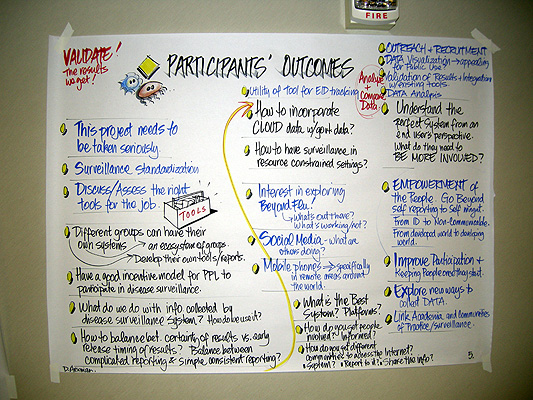 FIRE
VALIDATE!
The results
we get!
PARTICIPANTS' OUTCOMES
This project needs to
be taken seriously.
Surveillance standardization
Discuss/Assess the right
tools for the job.
TOOLS
Different groups can have their
own systems → an ecosystem of groups.
Develop their own tools/reports.
Have a good incentive model for PPL to
participate in disease surveillance.
What do we do with info collected by
disease surveillance system? How do we use it?
How to balance bet. certainty of results vs. early
release timing of results? Balance between
complicated reporting & simple, consistent reporting?
Utility of Tool for ED tracking
How to incorporate
CLOUD data w/gov't data?
How to have surveillance in
resource constrained settings?
Interest in exploring
Beyond Flu!
What's out there?
What's working/not?
Social Media - what are
others doing?
Mobile phones → specifically
in remote areas around
the world.
What is The Best
System? Platforms?
How do you get people
involved? Informed?
How do you get different
communities to access the Internet?
• System? • Report to it? • Share the info?
Analyze
+
Compare
Data
OUTREACH + RECRUITMENT
DATA Visualization → appealing
for Public Use?
Validation of Results + Integration
w/existing tools.
DATA Analysis
Understand the
perfect System from an
end users' perspective.
What do they need to
BE MORE INVOLVED?
EMPOWERMENT of
the People. Go Beyond
self reporting to Self mgmt.
From ID to Non-communicable.
From developed world to developing
world.
Improve Participation +
Keeping people once they start.
Explore new ways to
collect DATA.
Link Academia and communities
of Practice/surveillance.
5.